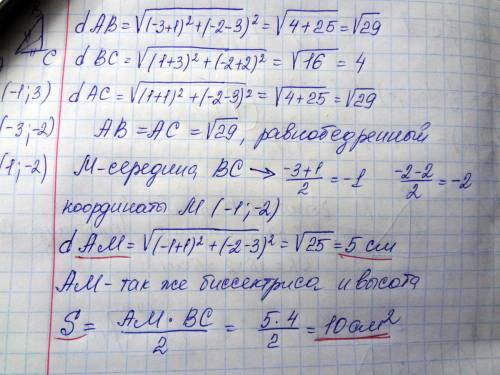 d AB = √(-3+1)² + (-2-3)² = √4+25 = √29
C d BC = √(1+3)² + (-2+2)² = √16 = 4
(-1; 3) d AC = √(1+1)² + (-2-3)² = √4+25 = √29
(-3; -2) AB = AC = √29, равнобедренный
(1; -2) М-середина BC → -3+1/2 = -1 -2-2/2 = -2
координаты М (-1; -2)
d AM = √(-1+1)² + (-2-3)² = √25 = 5 см
АМ - так же биссектриса и высота
S = AM · BC/2 = 5·4/2 = 10 см²